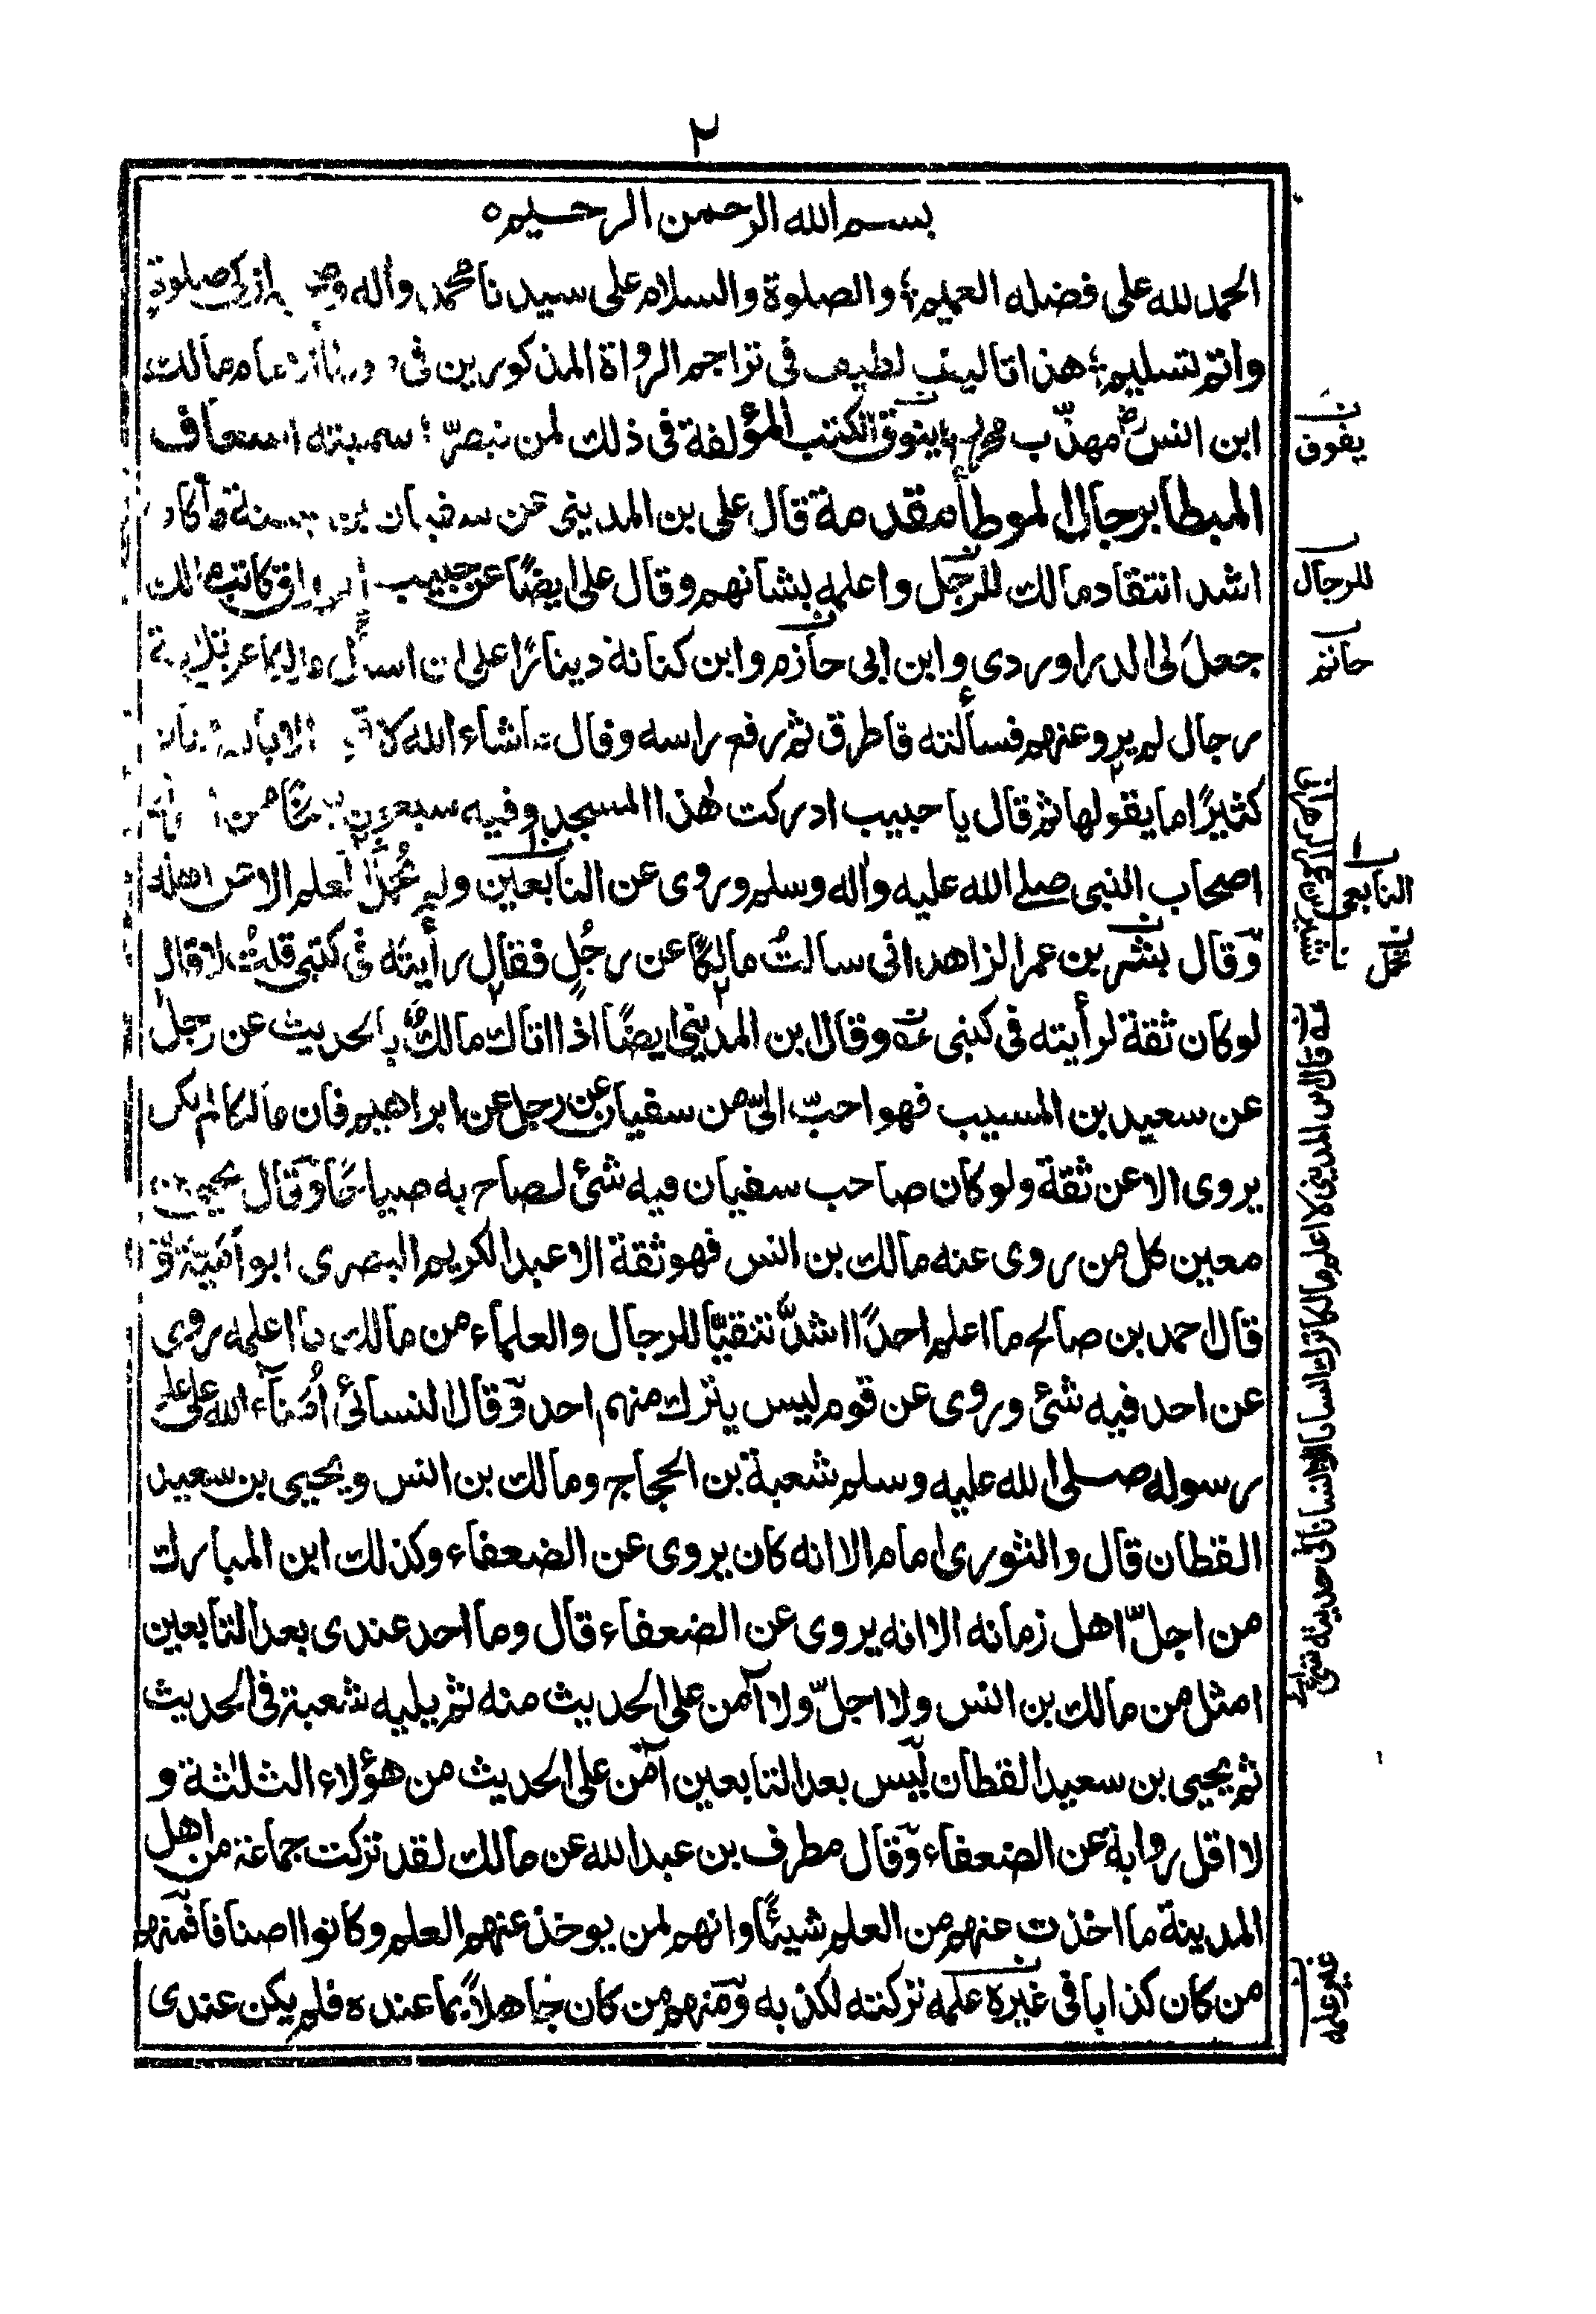 ٢
بسم الله الرحمن الرحيم ه
الحمد لله على فضله العميم؛ والصلوة والسلام على سيدنا محمد وأله ازكى صلوة
واتم تسليم؛ هذا تاليف لطيف فى تراجم الرواة المذكورين فى مالك
ابن انس مهذّب يتفوق الكتب المؤلفة فى ذلك لمن تبصّر؛ سميته اسعاف
المبطا برجال الموطأ مقدمة قال على بن المدينى عن سفيان بن
اشد انتقاد مالك للرجل واعلمه بشانهم وقال على ايضًا عن حبيب الوراق كاتب مالك
جعل لى الدراوردى وابن ابى حازم وابن كنانة دينارًا على ان اسأل مالكا عن ثلاثة
رجال لم يرو عنهم فسألته فاطرق ثم رفع راسه وقال ماشاء الله لا قوة الا بالله
كثيرًا ما يقولها ثم قال يا حبيب ادركت هذا المسجد وفيه سبعون
اصحاب النبى صلے الله عليه واله وسلم وروى عن التابعين ولم نحمل العلم الا عن اهله
وقال بشر بن عمر الزاهد انى سالت مالكًا عن رجُلٍ فقال رأيته فى كتبى قلتُ لا قال
لو كان ثقة لرأيته فى كتبى وقال ابن المدينى ايضًا اذا اتاك مالكٌ بالحديث عن رجل
عن سعيد بن المسيب فهو احبّ الىّ من سفيان عن رجل عن ابراهيم فان مالكا لم يكن
يروى الا عن ثقة ولو كان صاحب سفيان فيه شئ لصاح به صياحًا وقال يحيى بن
معين كل من روى عنه مالك بن انس فهو ثقة الا عبد الكريم البصرى ابو اميّة و
قال احمد بن صالح ما اعلم احدًا اشدّ تنقيًا للرجال والعلماء من مالك ما اعلمه روى
عن احد فيه شئ وروى عن قوم ليس يترك منهم احد وقال النسائى اُمناء الله على علم
رسوله صلى الله عليه وسلم شعبة بن الحجاج ومالك بن انس ويحيى بن سعيد
القطان قال والثورى امام الا انه كان يروى عن الضعفاء وكذلك ابن المبارك
من اجلّ اهل زمانه الا انه يروى عن الضعفاء قال وما احد عندى بعد التابعين
امثل من مالك بن انس ولا اجلّ ولا آمن على الحديث منه ثم يليه شعبة فى الحديث
ثم يحيى بن سعيد القطان ليس بعد التابعين آمن على الحديث من هؤلاء الثلثة و
لا اقل رواية عن الضعفاء وقال مطرف بن عبد الله عن مالك لقد تركت جماعة من اهل
المدينة ما اخذت عنهم من العلم شيئًا وانهم لمن يوخذ عنهم العلم وكانوا اصنافا فمنهم
من كان كذابا فى غيره علمه تركته لكذبه ومنهم من كان جاهلاً بما عنده فلم يكن عندى
يفوق
للرجال
حاتم
التابعى